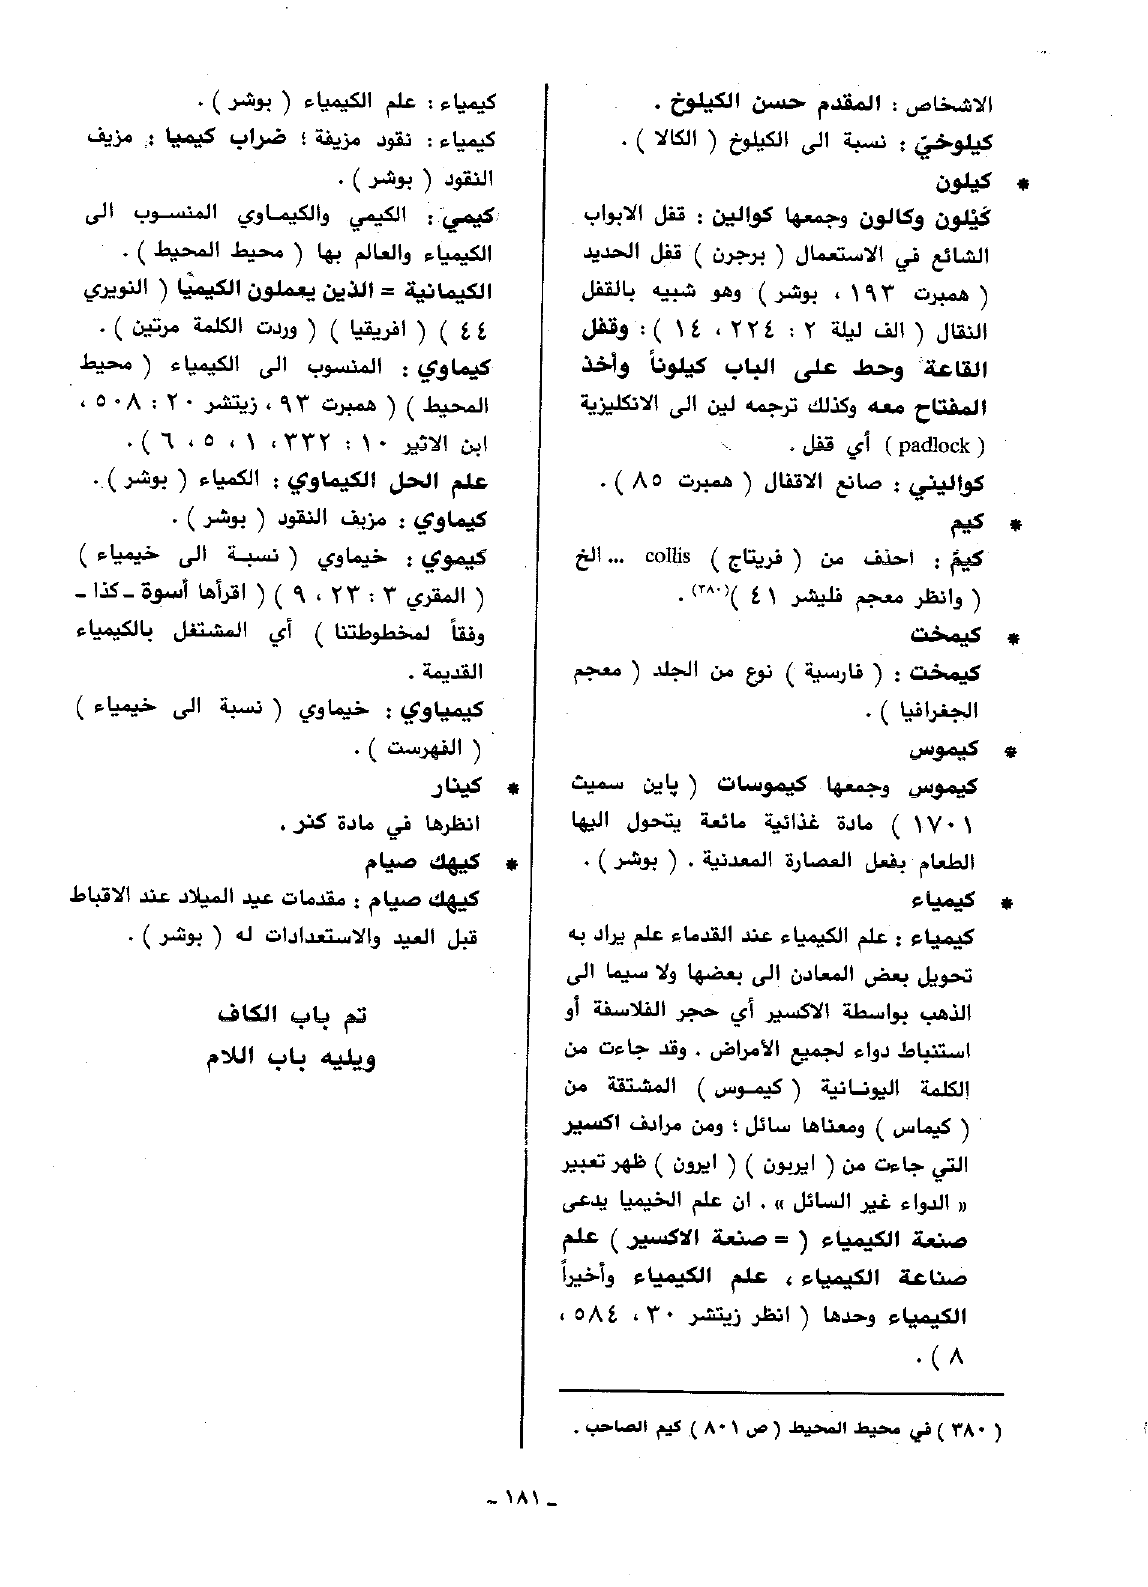 الاشخاص : المقدم حسن الكيلوخ .
كيلوخيّ : نسبة الى الكيلوخ ( الكالا ) .
* كيلون
كَيْلون وكالون وجمعها كوالين : قفل الابواب
الشائع في الاستعمال ( برجرن ) قفل الحديد
( همبرت ١٩٣ ، بوشر ) وهو شبيه بالقفل
النقال ( الف ليلة ٢ : ٢٢٤ ، ١٤ ) : وقفل
القاعة وحط على الباب كيلوناً وأخذ
المفتاح معه وكذلك ترجمه لين الى الانكليزية
( padlock ) أي قفل .
كواليني : صانع الاقفال ( همبرت ٨٥ ) .
* كيم
كيمْ : احذف من ( فريتاج ) collis ... الخ
( وانظر معجم فليشر ٤١ )(٣٨٠) .
* كيمخت
كيمخت : ( فارسية ) نوع من الجلد ( معجم
الجغرافيا ) .
* كيموس
كيموس وجمعها كيموسات ( پاين سميث
١٧٠١ ) مادة غذائية مائعة يتحول اليها
الطعام بفعل العصارة المعدنية . ( بوشر ) .
* كيمياء
كيمياء : علم الكيمياء عند القدماء علم يراد به
تحويل بعض المعادن الى بعضها ولا سيما الى
الذهب بواسطة الاكسير أي حجر الفلاسفة أو
استنباط دواء لجميع الأمراض . وقد جاءت من
الكلمة اليونانية ( كيموس ) المشتقة من
( كيماس ) ومعناها سائل ؛ ومن مرادف اكسير
التي جاءت من ( ايريون ) ( ايرون ) ظهر تعبير
« الدواء غير السائل » . ان علم الخيميا يدعى
صنعة الكيمياء ( = صنعة الاكسير ) علم
صناعة الكيمياء ، علم الكيمياء وأخيراً
الكيمياء وحدها ( انظر زيتشر ٣٠ ، ٥٨٤ ،
٨ ) .
( ٣٨٠ ) في محيط المحيط ( ص ٨٠١ ) كيم الصاحب .
كيمياء : علم الكيمياء ( بوشر ) .
كيمياء : نقود مزيفة ؛ ضراب كيميا : مزيف
النقود ( بوشر ) .
كيمي : الكيمي والكيماوي المنسوب الى
الكيمياء والعالم بها ( محيط المحيط ) .
الكيمانية = الذين يعملون الكيميّا ( النويري
٤٤ ) ( افريقيا ) ( وردت الكلمة مرتين ) .
كيماوي : المنسوب الى الكيمياء ( محيط
المحيط ) ( همبرت ٩٣ ، زيتشر ٢٠ : ٥٠٨ ،
ابن الاثير ١٠ : ٣٣٢ ، ١ ، ٥ ، ٦ ) .
علم الحل الكيماوي : الكمياء ( بوشر ) .
كيماوي : مزيف النقود ( بوشر ) .
كيموي : خيماوي ( نسبة الى خيمياء )
( المقري ٣ : ٢٣ ، ٩ ) ( اقرأها أسوة ـ كذا ـ
وفقاً لمخطوطتنا ) أي المشتغل بالكيمياء
القديمة .
كيمياوي : خيماوي ( نسبة الى خيمياء )
( الفهرست ) .
* كينار
انظرها في مادة كنر .
* كيهك صيام
كيهك صيام : مقدمات عيد الميلاد عند الاقباط
قبل العيد والاستعدادات له ( بوشر ) .
تم باب الكاف
ويليه باب اللام
ـ ١٨١ ـ